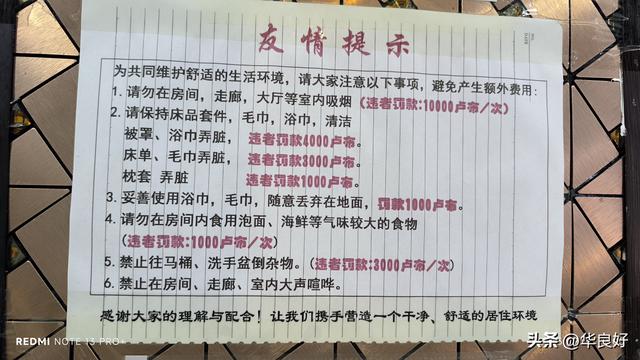 友情提示
为共同维护舒适的生活环境，请大家注意以下事项，避免产生额外费用：
1. 请勿在房间，走廊，大厅等室内吸烟（违者罚款:10000卢布/次）
2. 请保持床品套件，毛巾，浴巾，清洁
被罩、浴巾弄脏， 违者罚款4000卢布。
床单、毛巾弄脏， 违者罚款3000卢布。
枕套 弄脏 违者罚款1000卢布。
3. 妥善使用浴巾，毛巾，随意丢弃在地面，罚款1000卢布。
4. 请勿在房间内食用泡面、海鲜等气味较大的食物
（违者罚款:1000卢布/次）
5. 禁止往马桶、洗手盆倒杂物。（违者罚款:3000卢布/次）
6. 禁止在房间、走廊、室内大声喧哗。
感谢大家的理解与配合！让我们携手营造一个干净、舒适的居住环境
REDMI NOTE 13 PRO+
头条 @华良好